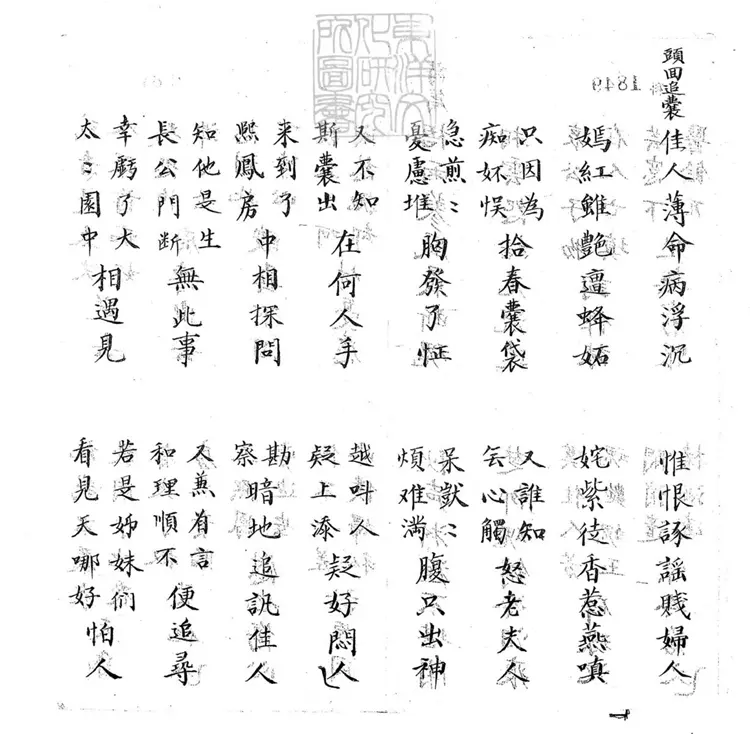 東洋文化研究所圖書
頭回追囊
佳人薄命病浮沉
惟恨諑謡賤婦人
嫣紅雖艷遭蜂妬
姹紫徒香惹燕嗔
只因為痴环悮拾春囊袋
又誰知心觸怒老夫人
急煎〻憂慮堆胸發了怔
呆獃〻煩难满腹只出神
又不知斯囊出在何人手
越叫人疑上添疑好悶人
来到了熙鳳房中相探問
勘察暗地追訊佳人
知他是生長公門断無此事
又蒹有言和理順不便追尋
幸虧了大太〻園中相遇見
若是姊妹们看見天哪好怕人